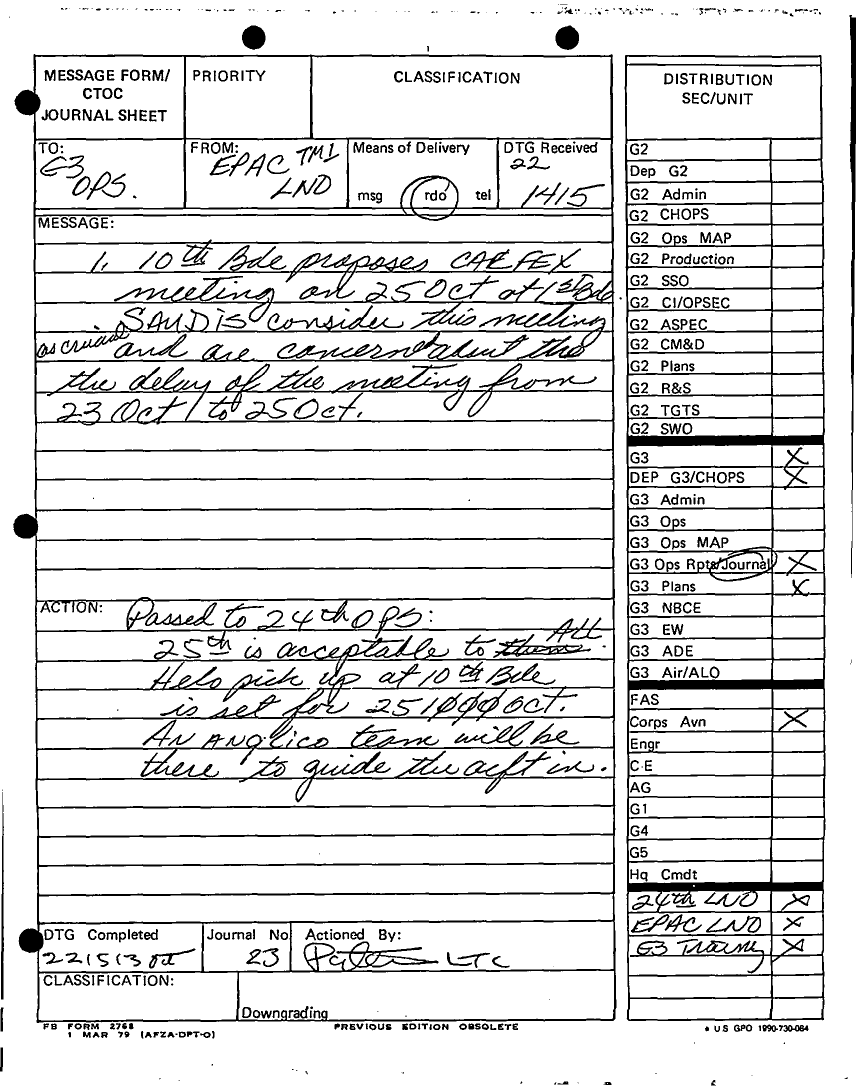 MESSAGE FORM/
CTOC
JOURNAL SHEET
PRIORITY
CLASSIFICATION
TO:
G3
OPS.
FROM:
EPAC TM1
LNO
Means of Delivery
msg rdo tel
DTG Received
22
1415
MESSAGE:
1. 10th Bde proposes CALFEX
meeting on 25 Oct at 1st Bde.
SAUDIS consider this meeting
as crucial and are concerned about the
the delay of the meeting from
23 Oct to 25 Oct.
ACTION:
Passed to 24th OPS:
25th is acceptable to them ALL.
Helo pick up at 10th Bde
is set for 251000 Oct.
AN ANGLICO team will be
there to guide the acft in.
DTG Completed
221513 Oct
Journal No
23
Actioned By:
LTC
CLASSIFICATION:
Downgrading
FB FORM 2768
1 MAR 79 (AFZA-DPT-O)
PREVIOUS EDITION OBSOLETE
DISTRIBUTION
SEC/UNIT
G2
Dep G2
G2 Admin
G2 CHOPS
G2 Ops MAP
G2 Production
G2 SSO
G2 CI/OPSEC
G2 ASPEC
G2 CM&D
G2 Plans
G2 R&S
G2 TGTS
G2 SWO
G3 X
DEP G3/CHOPS X
G3 Admin
G3 Ops
G3 Ops MAP
G3 Ops Rpts/Journal X
G3 Plans X
G3 NBCE
G3 EW
G3 ADE
G3 Air/ALO
FAS
Corps Avn X
Engr
CE
AG
G1
G4
G5
Hq Cmdt
24th LNO X
EPAC LNO X
G3 Training X
* US GPO 1990-730-084